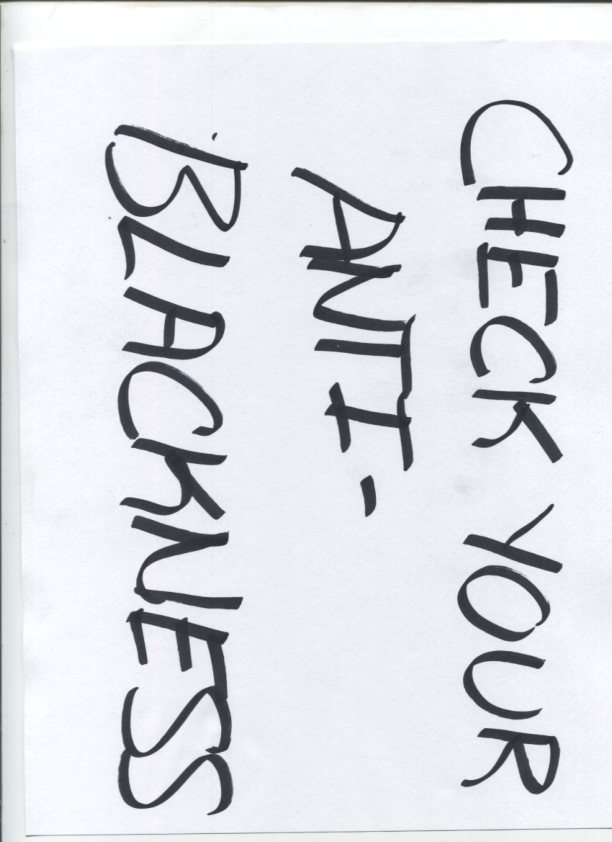 CHECK YOUR
ANTI-
BLACKNESS